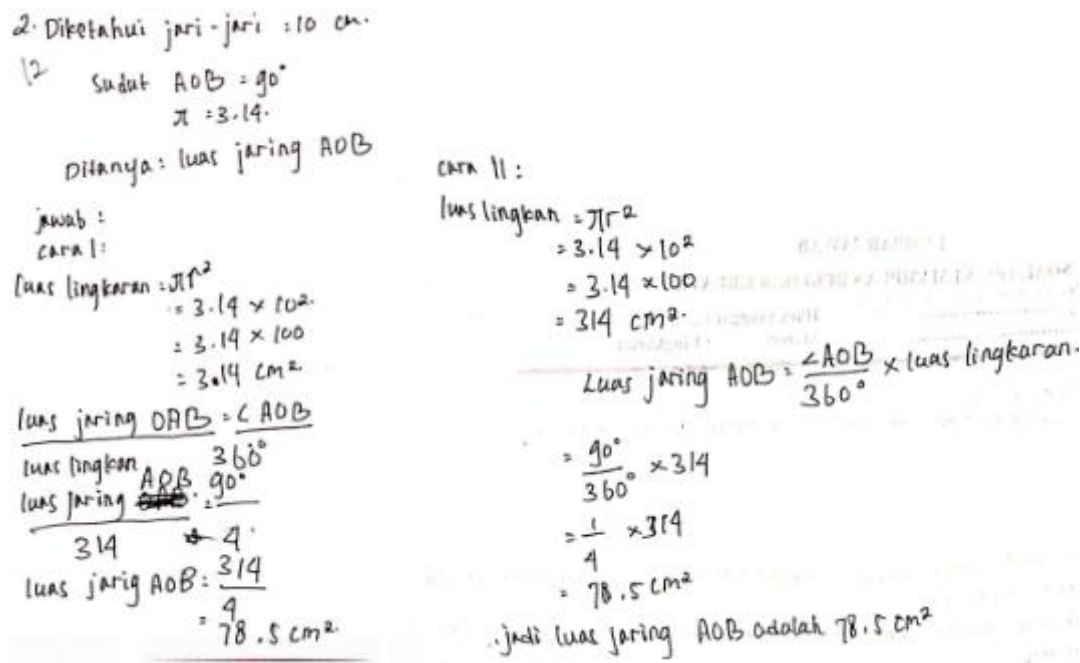 2. Diketahui jari-jari : 10 cm.
12
Sudut AOB = 90°
π = 3.14.
Ditanya: luas jaring AOB
jawab :
cara 1:
Luas lingkaran = πr²
= 3.14 × 10²
= 3.14 × 100
= 3.14 cm²
luas jaring OAB / luas lingkan = ∠AOB / 360°
luas jaring AOB / 314 = 90° / 4
luas jarig AOB = 314 / 4
= 78.5 cm²
cara II :
luas lingkan = πr²
= 3.14 × 10²
= 3.14 × 100
= 314 cm².
Luas jaring AOB = ∠AOB / 360° × luas lingkaran.
= 90° / 360° × 314
= 1 / 4 × 314
= 78.5 cm²
∴ jadi luas jaring AOB adalah 78.5 cm²